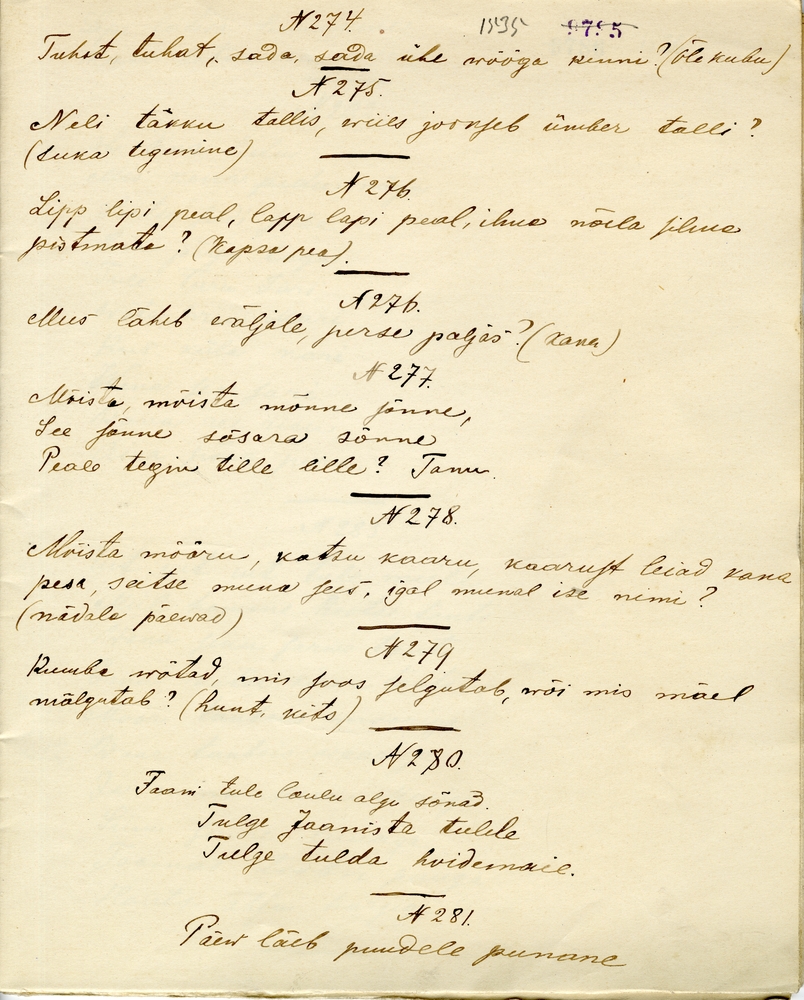 N 274. 1535 9795
Tuhat, tuhat, sada, sada ühe wööga kinni? (Õle kubu)
N 275.
Neli täkku tallis, wiies jookseb ümber talli?
(Suka tegemine)
N 276
Lipp lipi peal, lapp lapi peal, ilma nõela silma
pistmata? (Kapsa pea).
N 276.
Mees läheb wäljale, perse paljas? (kana)
N 277.
Mõista, mõista mõnne jõnne,
See jõnne sõsara sõnne
Peale tegin tille lille? Tanu.
N 278.
Mõista mööru, katsu kaaru, kaarust leiad kana
pesa, seitse muna sees, igal munal ise nimi?
(nädale päewad)
N 279
Kumba wõtad, mis soos selgutab, wõi mis mäel
mälgutab? (hunt, kits)
N 280.
Jaani tule laulu algu sõnad.
Tulge Jaanista tulele
Tulge tulda hoidemaie.
N 281.
Päew läeb puudele punane